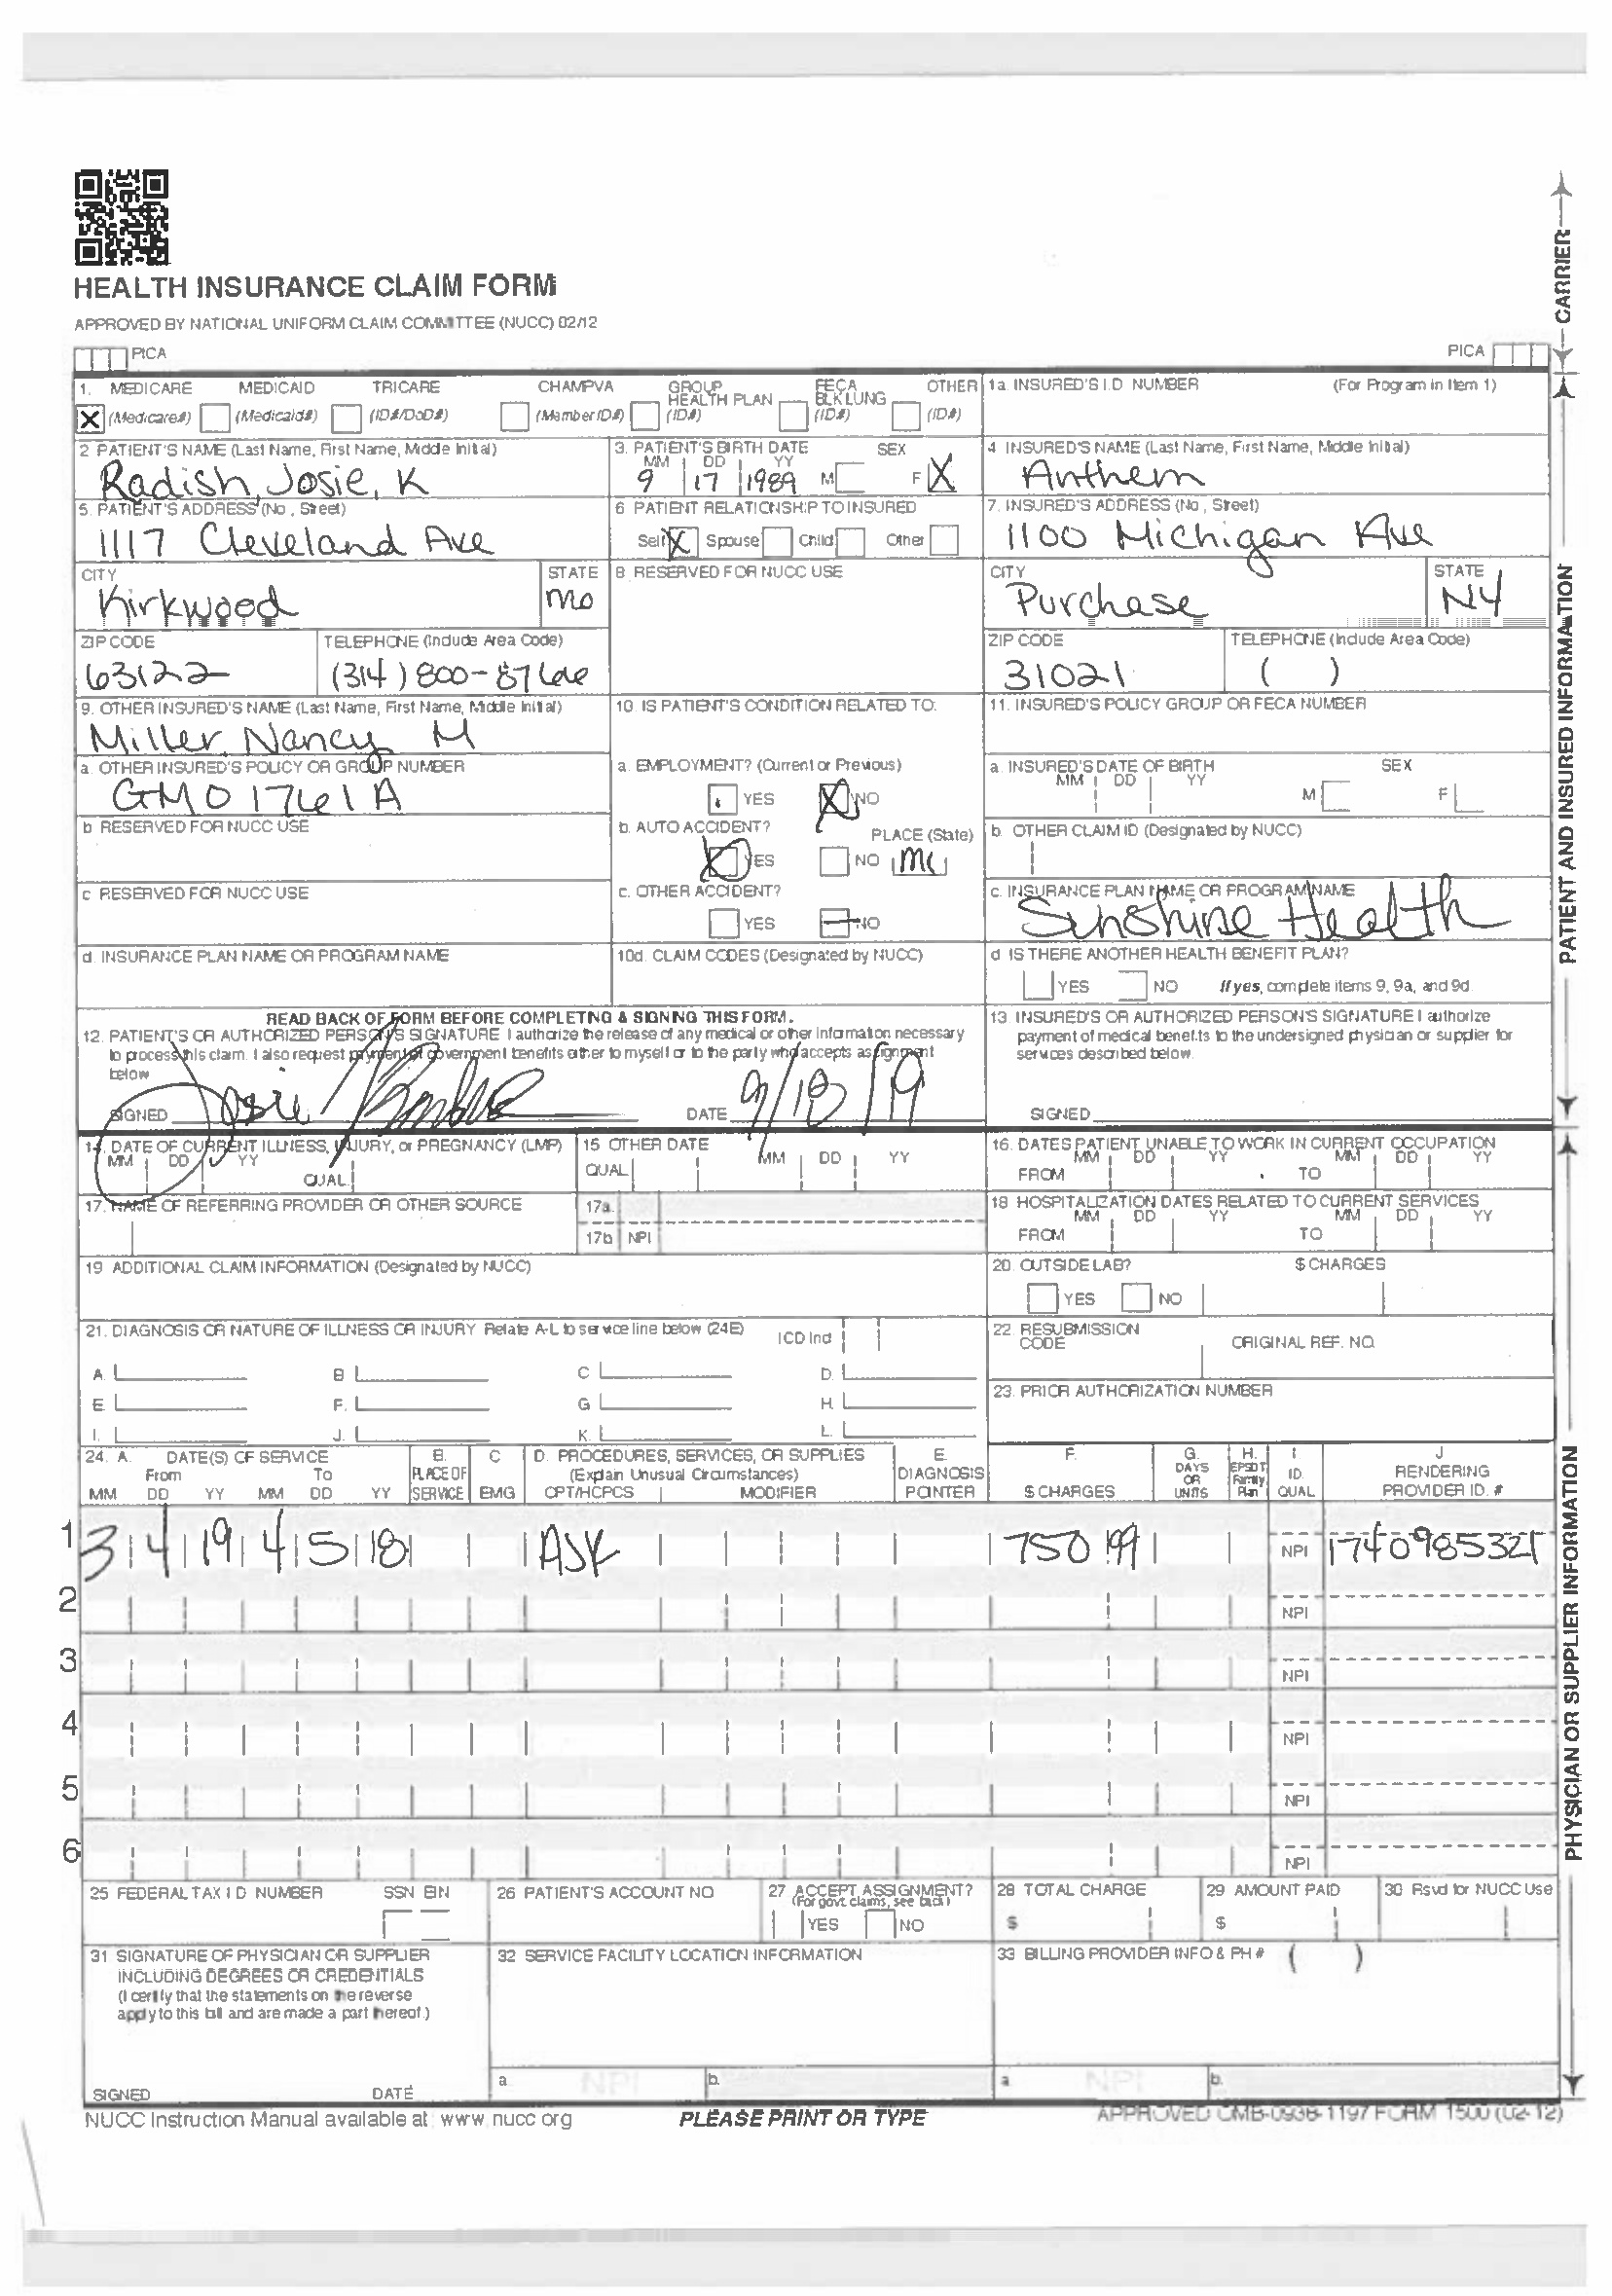 HEALTH INSURANCE CLAIM FORM
APPROVED BY NATIONAL UNIFORM CLAIM COMMITTEE (NUCC) 02/12
PICA
PICA
CARRIER
1. MEDICARE MEDICAID TRICARE CHAMPVA GROUP HEALTH PLAN FECA BLK LUNG OTHER
X (Medicare#) (Medicaid#) (ID#/DoD#) (Member ID#) (ID#) (ID#) (ID#)
1a. INSURED'S I.D. NUMBER (For Program in Item 1)
2. PATIENT'S NAME (Last Name, First Name, Middle Initial)
Radish, Josie, K
3. PATIENT'S BIRTH DATE SEX
MM DD YY
9 17 1989 M F X
4. INSURED'S NAME (Last Name, First Name, Middle Initial)
Anthem
5. PATIENT'S ADDRESS (No., Street)
1117 Cleveland Ave
6. PATIENT RELATIONSHIP TO INSURED
Self X Spouse Child Other
7. INSURED'S ADDRESS (No., Street)
1100 Michigan Ave
CITY STATE
Kirkwood MO
8. RESERVED FOR NUCC USE
CITY STATE
Purchase NY
ZIP CODE TELEPHONE (Include Area Code)
63122 (314) 800-8766
ZIP CODE TELEPHONE (Include Area Code)
31021 ( )
9. OTHER INSURED'S NAME (Last Name, First Name, Middle Initial)
Miller, Nancy M
10. IS PATIENT'S CONDITION RELATED TO:
11. INSURED'S POLICY GROUP OR FECA NUMBER
a. OTHER INSURED'S POLICY OR GROUP NUMBER
GM01761A
a. EMPLOYMENT? (Current or Previous)
YES X NO
a. INSURED'S DATE OF BIRTH SEX
MM DD YY M F
b. RESERVED FOR NUCC USE
b. AUTO ACCIDENT? PLACE (State)
X YES NO
b. OTHER CLAIM ID (Designated by NUCC)
c. RESERVED FOR NUCC USE
c. OTHER ACCIDENT?
YES NO
c. INSURANCE PLAN NAME OR PROGRAM NAME
Sunshine Health
d. INSURANCE PLAN NAME OR PROGRAM NAME
10d. CLAIM CODES (Designated by NUCC)
d. IS THERE ANOTHER HEALTH BENEFIT PLAN?
YES NO If yes, complete items 9, 9a, and 9d.
PATIENT AND INSURED INFORMATION
READ BACK OF FORM BEFORE COMPLETING & SIGNING THIS FORM.
12. PATIENT'S OR AUTHORIZED PERSON'S SIGNATURE I authorize the release of any medical or other information necessary
to process this claim. I also request payment of government benefits either to myself or to the party who accepts assignment
below
SIGNED Josie DATE 9/18/19
13. INSURED'S OR AUTHORIZED PERSON'S SIGNATURE I authorize
payment of medical benefits to the undersigned physician or supplier for
services described below.
SIGNED
14. DATE OF CURRENT ILLNESS, INJURY, or PREGNANCY (LMP)
MM DD YY QUAL.
15. OTHER DATE
QUAL. MM DD YY
16. DATES PATIENT UNABLE TO WORK IN CURRENT OCCUPATION
MM DD YY MM DD YY
FROM TO
17. NAME OF REFERRING PROVIDER OR OTHER SOURCE
17a.
17b. NPI
18. HOSPITALIZATION DATES RELATED TO CURRENT SERVICES
MM DD YY MM DD YY
FROM TO
19. ADDITIONAL CLAIM INFORMATION (Designated by NUCC)
20. OUTSIDE LAB? $ CHARGES
YES NO
21. DIAGNOSIS OR NATURE OF ILLNESS OR INJURY Relate A-L to service line below (24E) ICD Ind.
A. B. C. D.
E. F. G. H.
I. J. K. L.
22. RESUBMISSION CODE ORIGINAL REF. NO.
23. PRIOR AUTHORIZATION NUMBER
24. A. DATE(S) OF SERVICE B. C. D. PROCEDURES, SERVICES, OR SUPPLIES E. F. G. H. I. J.
From To PLACE OF (Explain Unusual Circumstances) DIAGNOSIS DAYS OR UNITS EPSDT Family Plan ID. RENDERING
MM DD YY MM DD YY SERVICE EMG CPT/HCPCS MODIFIER POINTER $ CHARGES QUAL. PROVIDER ID. #
1 3 4 19 4 5 18 ASK 750 99 NPI 1740985321
2 NPI
3 NPI
4 NPI
5 NPI
6 NPI
25. FEDERAL TAX I.D. NUMBER SSN EIN
26. PATIENT'S ACCOUNT NO.
27. ACCEPT ASSIGNMENT?
(For govt. claims, see back)
YES NO
28. TOTAL CHARGE
$
29. AMOUNT PAID
$
30. Rsvd for NUCC Use
31. SIGNATURE OF PHYSICIAN OR SUPPLIER
INCLUDING DEGREES OR CREDENTIALS
(I certify that the statements on the reverse
apply to this bill and are made a part thereof.)
SIGNED DATE
32. SERVICE FACILITY LOCATION INFORMATION
a. NPI b.
33. BILLING PROVIDER INFO & PH # ( )
a. NPI b.
PHYSICIAN OR SUPPLIER INFORMATION
NUCC Instruction Manual available at: www.nucc.org
PLEASE PRINT OR TYPE
APPROVED OMB-0938-1197 FORM 1500 (02-12)